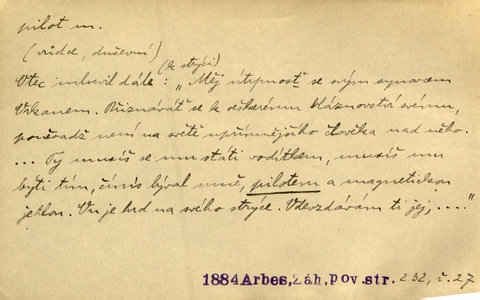 pilot m.
(vůdce, duševní)
(ke strýci)
Otec mluvil dále: "Měj útrpnost se svým synovcem
Urbanem. Přiznávátě se k veškerému bláznovství svému,
poněvadž není na světě upřímnějšího člověka nad něho.
... Ty musíš se mu státi vodítkem, musíš mu
býti tím, čímžs býval mně, pilotem a magnetickou
jehlou. On je hrd na svého strýce. Odevzdávám ti jej, ...."
1884 Arbes, Záh, pov. str. 232, č. 27